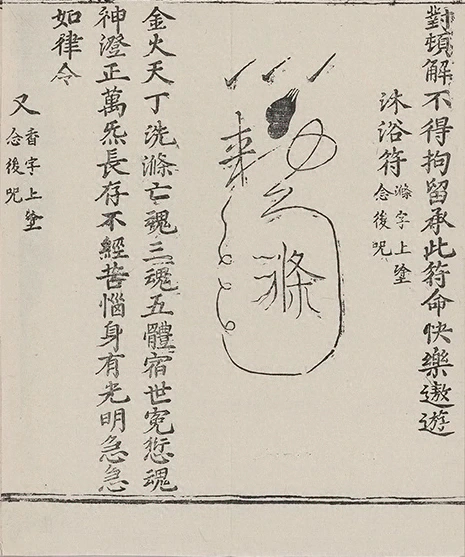 對頓解不得拘留承此符命快樂遨遊
沐浴符
滌字上塗
念後咒
来
滌
金火天丁洗滌亡魂三魂五體宿世冤愆魂
神澄正萬炁長存不經苦惱身有光明急急
如律令
又
香字上塗
念後咒